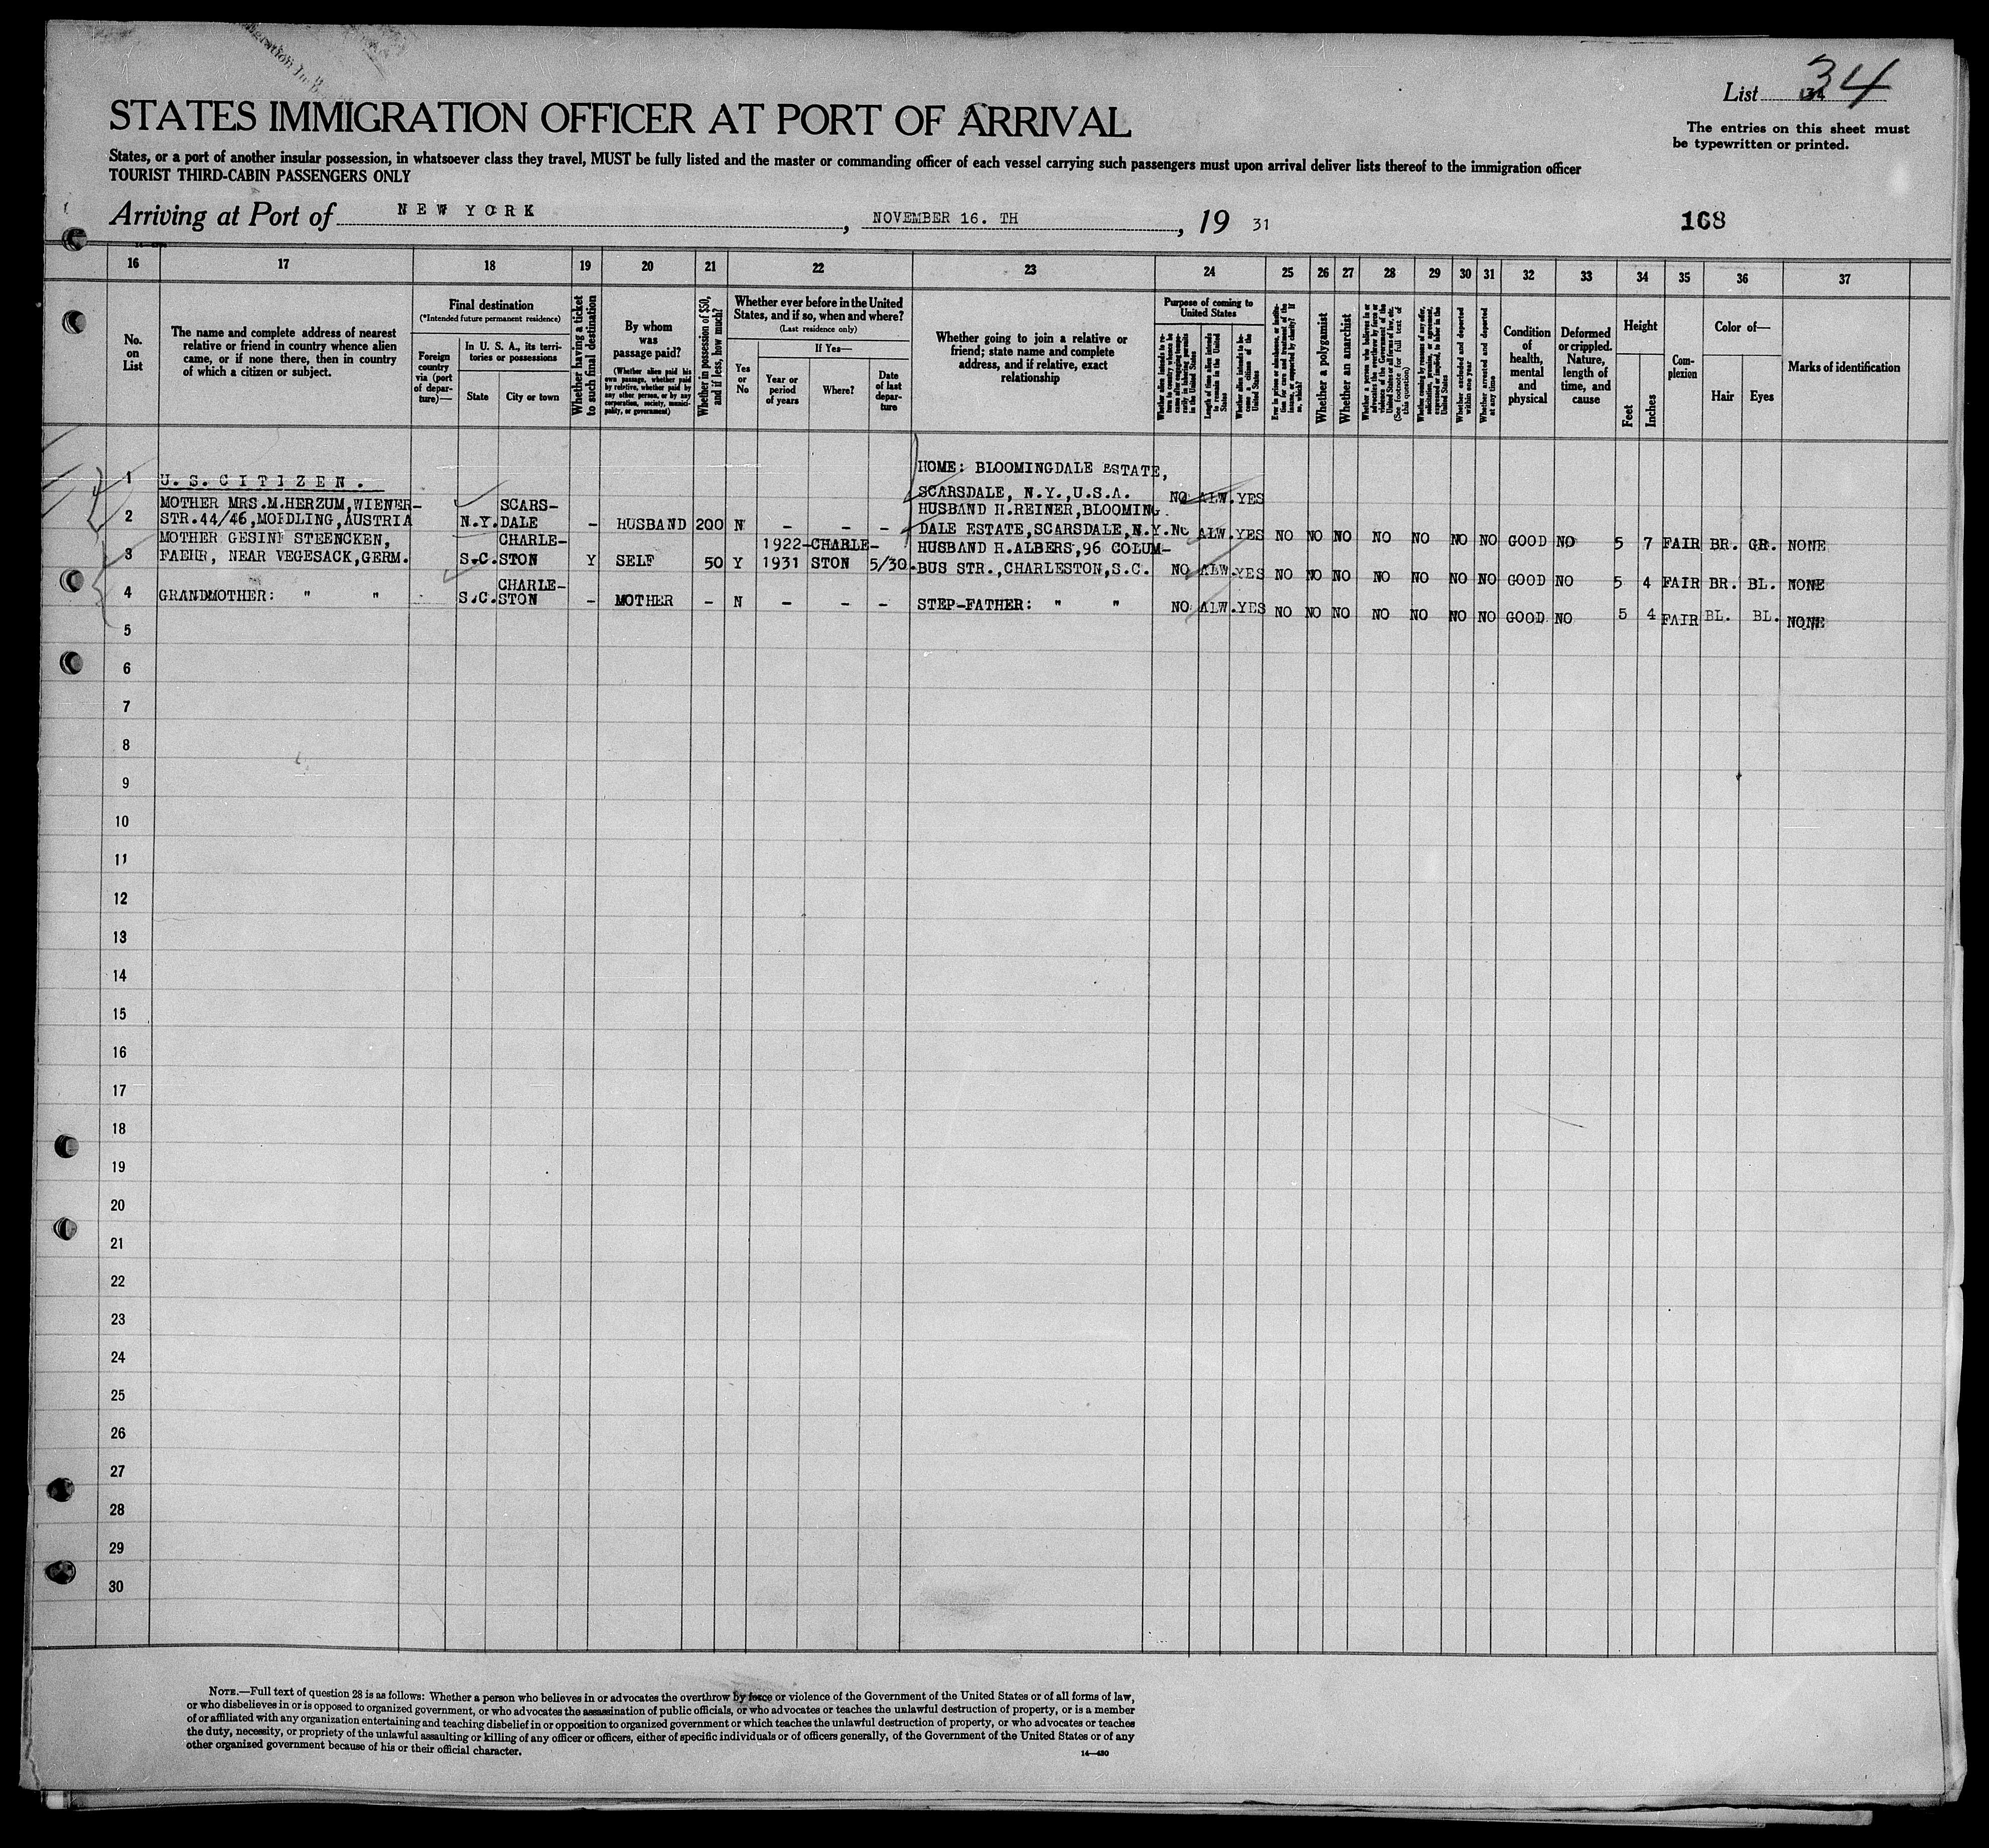 List 34
The entries on this sheet must
be typewritten or printed.
STATES IMMIGRATION OFFICER AT PORT OF ARRIVAL
States, or a port of another insular possession, in whatsoever class they travel, MUST be fully listed and the master or commanding officer of each vessel carrying such passengers must upon arrival deliver lists thereof to the immigration officer
TOURIST THIRD-CABIN PASSENGERS ONLY
Arriving at Port of NEW YORK, NOVEMBER 16. TH, 19 31
168
16 17 18 19 20 21 22 23 24 25 26 27 28 29 30 31 32 33 34 35 36 37
No.
on
List
The name and complete address of nearest
relative or friend in country whence alien
came, or if none there, then in country
of which a citizen or subject.
Final destination
(*Intended future permanent residence)
Foreign
country
via (port
of depar-
ture)—
In U. S. A., its terri-
tories or possessions
State
City or town
Whether having a ticket
to such final destination
By whom
was
passage paid?
(Whether alien paid his
own passage, whether paid
by relative, whether paid by
any other person, or by any
corporation, society, munici-
pality, or government)
Whether in possession of $50,
and if less, how much?
Whether ever before in the United
States, and if so, when and where?
(Last residence only)
Yes
or
No
If Yes—
Year or
period
of years
Where?
Date
of last
depar-
ture
Whether going to join a relative or
friend; state name and complete
address, and if relative, exact
relationship
Purpose of coming to
United States
Length of time alien intends
to remain in the United
States
Whether alien intends to be-
come a citizen of the
United States
Whether a polygamist
Whether an anarchist
(See footnote for full text of
this question)
Whether excluded and deported
within one year
Whether arrested and deported
at any time
Condition
of
health,
mental
and
physical
Deformed
or crippled.
Nature,
length of
time, and
cause
Height
Feet
Inches
Com-
plexion
Color of—
Hair
Eyes
Marks of identification
1 U.S.CITIZEN. HOME: BLOOMINGDALE ESTATE,
SCARSDALE, N.Y.,U.S.A. NO ALW. YES
2 MOTHER MRS.M.HERZUM,WIENER- SCARS- HUSBAND H.REINER,BLOOMING
STR.44/46,MOEDLING,AUSTRIA N.Y. DALE - HUSBAND 200 N - - - DALE ESTATE,SCARSDALE,N.Y. NO ALW. YES NO NO NO NO NO NO NO GOOD NO 5 7 FAIR BR. GR. NONE
3 MOTHER GESINE STEENCKEN, CHARLE- 1922- CHARLE- HUSBAND H.ALBERS,96 COLUM-
FAEHR, NEAR VEGESACK,GERM. S.C. STON Y SELF 50 Y 1931 STON 5/30. BUS STR.,CHARLESTON,S.C. NO ALW. YES NO NO NO NO NO NO NO GOOD NO 5 4 FAIR BR. BL. NONE
4 GRANDMOTHER: " " CHARLE-
S.C. STON - MOTHER - N - - - STEP-FATHER: " " NO ALW. YES NO NO NO NO NO NO NO GOOD NO 5 4 FAIR BL. BL. NONE
5
6
7
8
9
10
11
12
13
14
15
16
17
18
19
20
21
22
23
24
25
26
27
28
29
30
NOTE.—Full text of question 28 is as follows: Whether a person who believes in or advocates the overthrow by force or violence of the Government of the United States or of all forms of law,
or who disbelieves in or is opposed to organized government, or who advocates the assassination of public officials, or who advocates or teaches the unlawful destruction of property, or is a member
of or affiliated with any organization entertaining and teaching disbelief in or opposition to organized government or which teaches the unlawful destruction of property, or who advocates or teaches
the duty, necessity, or propriety of the unlawful assaulting or killing of any officer or officers, either of specific individuals or of officers generally, of the Government of the United States or of any
other organized government because of his or their official character.
14—430